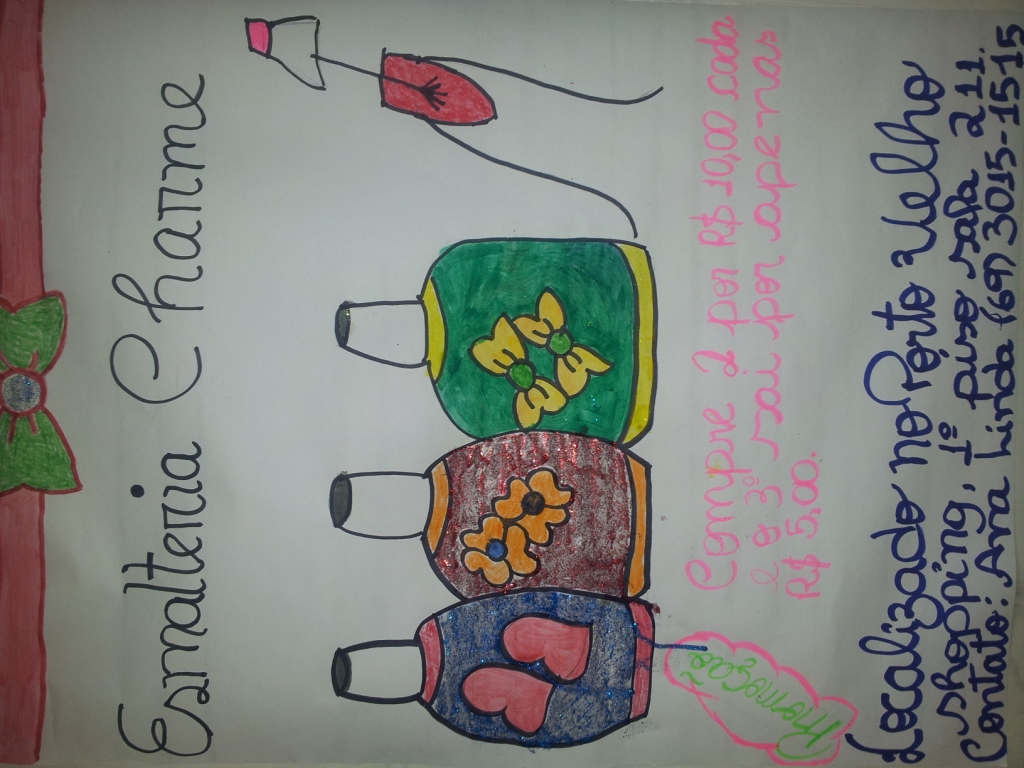 Esmalteria Charme
Promoção
Compre 2 por R$ 10,00 cada
e o 3º sai por apenas
R$ 5,00.
Localizado no Porto Velho
Shopping, 1º piso sala 211.
Contato: Ana Linda (69) 3015-1515